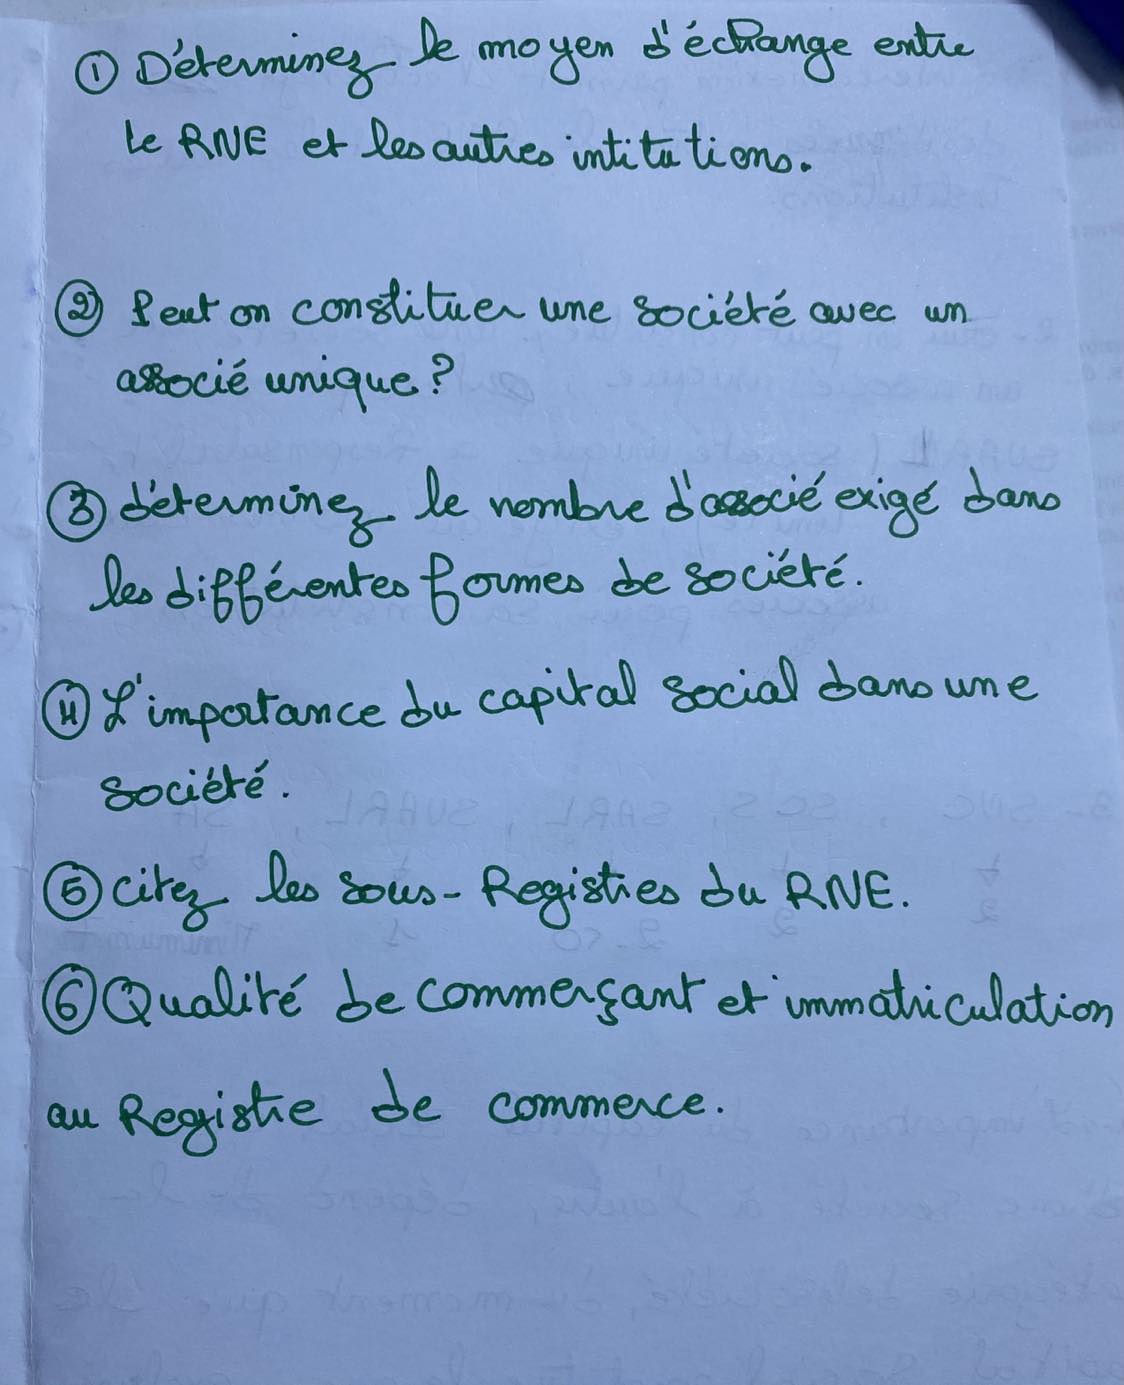 ① Déterminez le moyen d'échange entre
le RNE et les autres intitutions.
② Peut on constituer une société avec un
associé unique ?
③ déterminez le nombre d'associé exigé dans
les différentes formes de société.
④ L'importance du capital social dans une
société.
⑤ citez les sous-Registres du RNE.
⑥ Qualité de commerçant et immatriculation
au Registre de commerce.